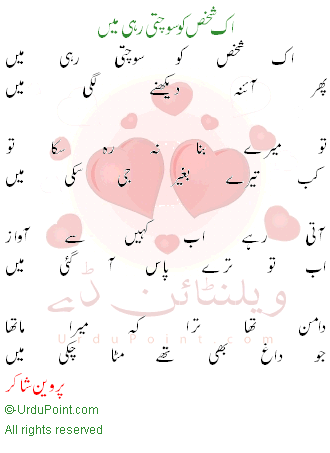 اک شخص کو سوچتی رہی میں
اک شخص کو سوچتی رہی میں
پھر آئنہ دیکھنے لگی میں
تو میرے بنا نہ رہ سکا تو
کب تیرے بغیر جی سکی میں
آتی رہے اب کہیں سے آواز
اب تو ترے پاس آ گئی میں
دامن تھا ترا کہ میرا ماتھا
جو داغ بھی تھے مٹا چکی میں
ویلنٹائن ڈے
UrduPoint.com
پروین شاکر
©-UrduPoint.com
All rights reserved